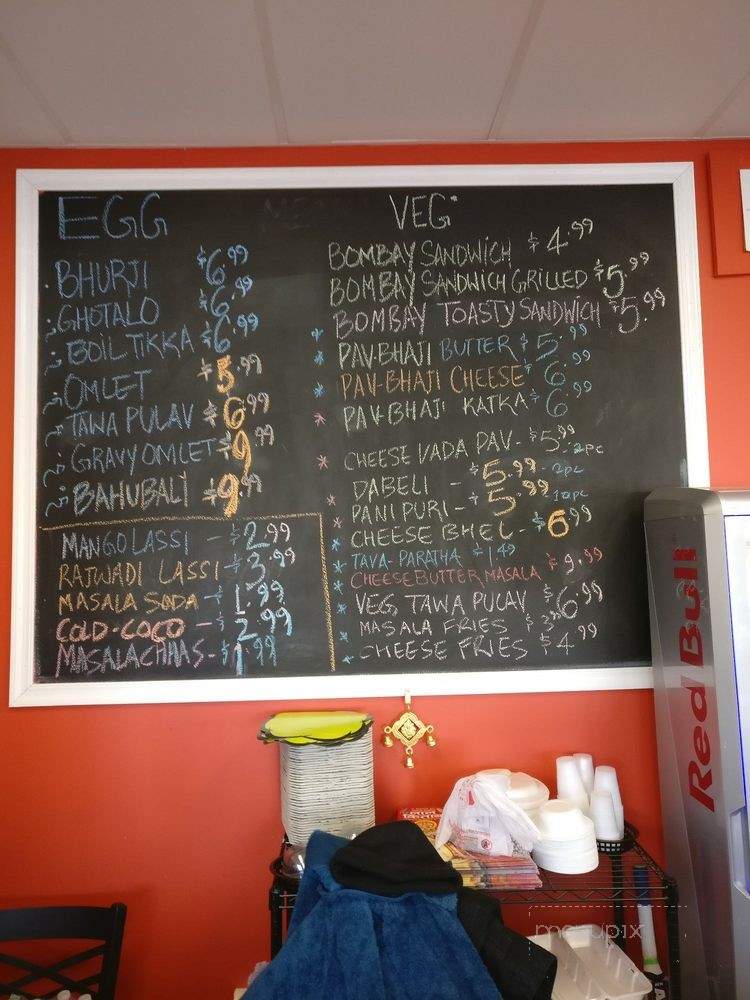 EGG
BHURJI $6.99
GHOTALO $6.99
BOIL TIKKA $6.99
OMLET $5.99
TAWA PULAV $6.99
GRAVY OMLET $9.99
BAHUBALI $9.99
MANGO LASSI - $2.99
RAJWADI LASSI - $3.99
MASALA SODA - $1.99
COLD-COCO - $2.99
MASALACHAAS - $1.99
VEG*
BOMBAY SANDWICH $4.99
BOMBAY SANDWICH GRILLED $5.99
BOMBAY TOASTY SANDWICH $5.99
PAV-BHAJI BUTTER $5.99
PAV-BHAJI CHEESE $6.99
PAV-BHAJI KATKA $6.99
CHEESE VADA PAV - $5.99 - 2pc
DABELI - $5.99 - 2pc
PANI PURI - $5.99 - 10pc
CHEESE BHEL - $6.99
TAVA-PARATHA $1.49
CHEESE BUTTER MASALA $9.99
VEG, TAWA PULAV $6.99
MASALA FRIES $3.99
CHEESE FRIES $4.99
Red Bull
menupix